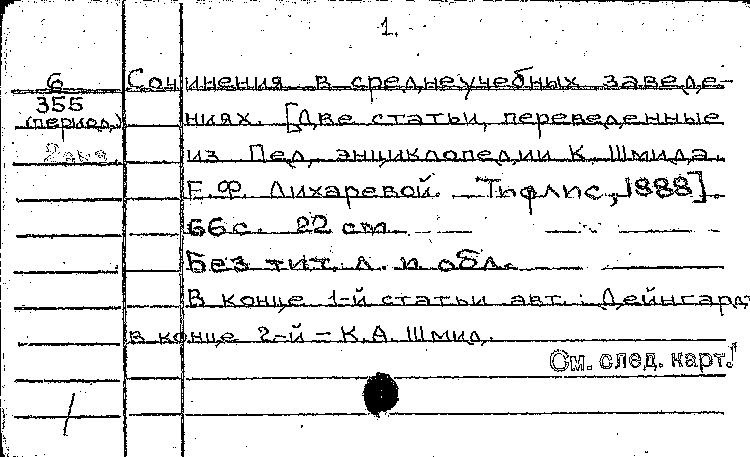 1.
6
355
(период.)
2 экз.
Сочинения в среднеучебных заведе-
ниях. [Две статьи, переведенные
из Пед. энциклопедии К. Шмида.
Е.Ф. Лихаревой. Тифлис, 1888].
66 с. 22 см.
Без тит. л. и обл.
В конце 1-й статьи авт.: Дейнгард;
в конце 2-й - К.А. Шмид.
См. след. карт.